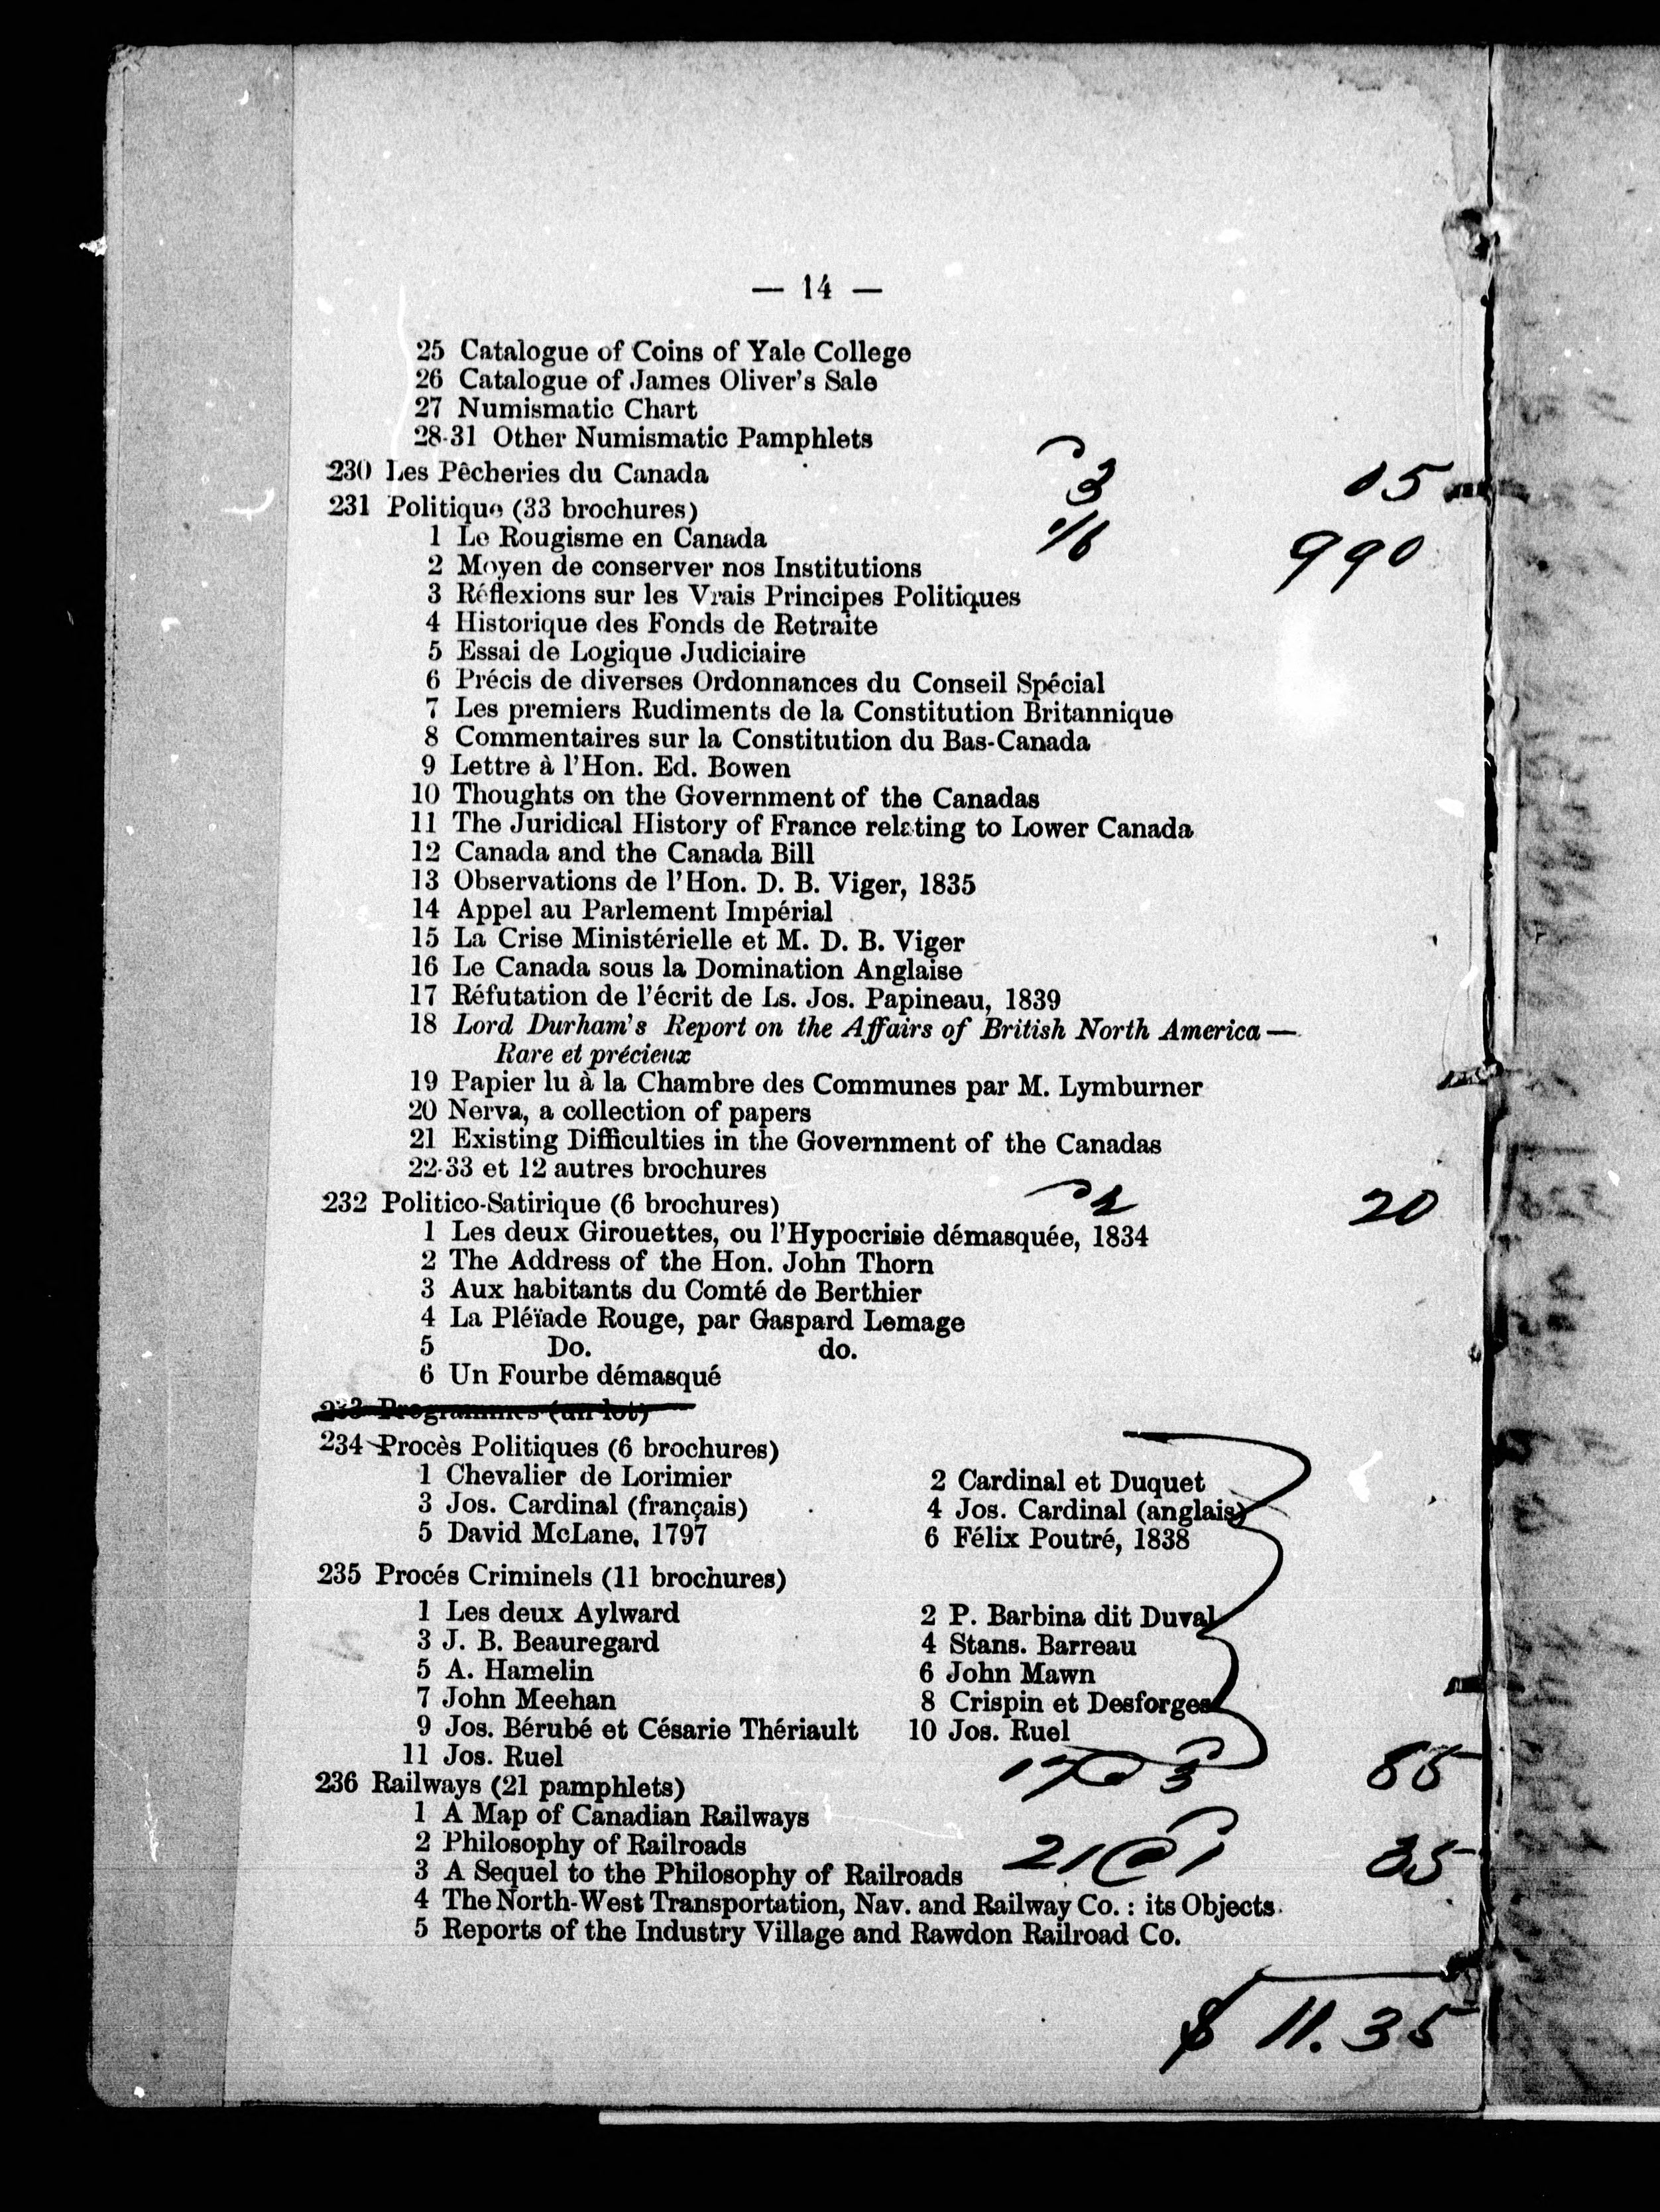 — 14 —
25 Catalogue of Coins of Yale College
26 Catalogue of James Oliver's Sale
27 Numismatic Chart
28-31 Other Numismatic Pamphlets
230 Les Pêcheries du Canada 3 15
231 Politique (33 brochures)
1 Le Rougisme en Canada 1/6 990
2 Moyen de conserver nos Institutions
3 Réflexions sur les Vrais Principes Politiques
4 Historique des Fonds de Retraite
5 Essai de Logique Judiciaire
6 Précis de diverses Ordonnances du Conseil Spécial
7 Les premiers Rudiments de la Constitution Britannique
8 Commentaires sur la Constitution du Bas-Canada
9 Lettre à l'Hon. Ed. Bowen
10 Thoughts on the Government of the Canadas
11 The Juridical History of France relating to Lower Canada
12 Canada and the Canada Bill
13 Observations de l'Hon. D. B. Viger, 1835
14 Appel au Parlement Impérial
15 La Crise Ministérielle et M. D. B. Viger
16 Le Canada sous la Domination Anglaise
17 Réfutation de l'écrit de Ls. Jos. Papineau, 1839
18 Lord Durham's Report on the Affairs of British North America —
Rare et précieux
19 Papier lu à la Chambre des Communes par M. Lymburner
20 Nerva, a collection of papers
21 Existing Difficulties in the Government of the Canadas
22-33 et 12 autres brochures
232 Politico-Satirique (6 brochures) 20
1 Les deux Girouettes, ou l'Hypocrisie démasquée, 1834
2 The Address of the Hon. John Thorn
3 Aux habitants du Comté de Berthier
4 La Pléïade Rouge, par Gaspard Lemage
5 Do. do.
6 Un Fourbe démasqué
233 Programmes (un lot)
234 Procès Politiques (6 brochures)
1 Chevalier de Lorimier 2 Cardinal et Duquet
3 Jos. Cardinal (français) 4 Jos. Cardinal (anglais)
5 David McLane, 1797 6 Félix Poutré, 1838
235 Procés Criminels (11 brochures)
1 Les deux Aylward 2 P. Barbina dit Duval
3 J. B. Beauregard 4 Stans. Barreau
5 A. Hamelin 6 John Mawn
7 John Meehan 8 Crispin et Desforges
9 Jos. Bérubé et Césarie Thériault 10 Jos. Ruel
11 Jos. Ruel 17 @ 3
236 Railways (21 pamphlets)
1 A Map of Canadian Railways
2 Philosophy of Railroads 21 @ 1 35
3 A Sequel to the Philosophy of Railroads
4 The North-West Transportation, Nav. and Railway Co.: its Objects.
5 Reports of the Industry Village and Rawdon Railroad Co.
$ 11.35